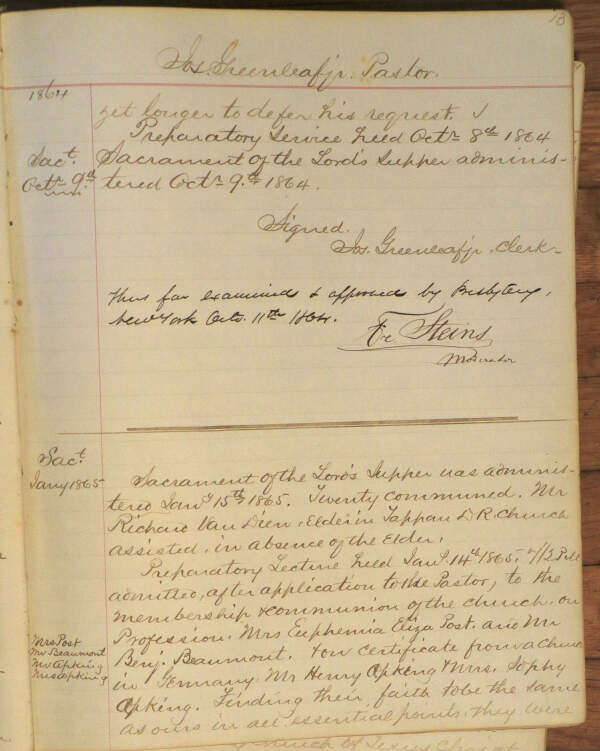 13
Jos. Greenleaf jr. Pastor.
1864
yet longer to defer his request.
Preparatory Service held Octr. 8th 1864
Sact.
Sacrament of the Lord's Supper adminis-
Octr. 9th
tered Oct. 9th 1864.
Signed.
Jos. Greenleaf jr. Clerk
Thus far examined & approved by Presbytery.
New York Octo. 11th 1864.
Fr. Steins
Moderator
Sact.
Jany 1865
Sacrament of the Lord's Supper was adminis-
tered Jany 15th 1865. Twenty communed. Mr
Richard Van Dien, Elder in Tappan D R. Church
assisted, in absence of the Elder.
Preparatory Lecture held Jany. 14th 1865.
admitted, after application to the Pastor, to the
membership & communion of the church, on
Profession. Mrs Euphemia Eliza Post. and Mr
Mrs Post
Mr Beaumont
Mr Apking
Mrs Apking
Benj. Beaumont. & on Certificate from a Church
in Germany Mr Henry Apking & Mrs. Sophy
Apking. Finding their faith to be the same
as ours in all essential points, they were